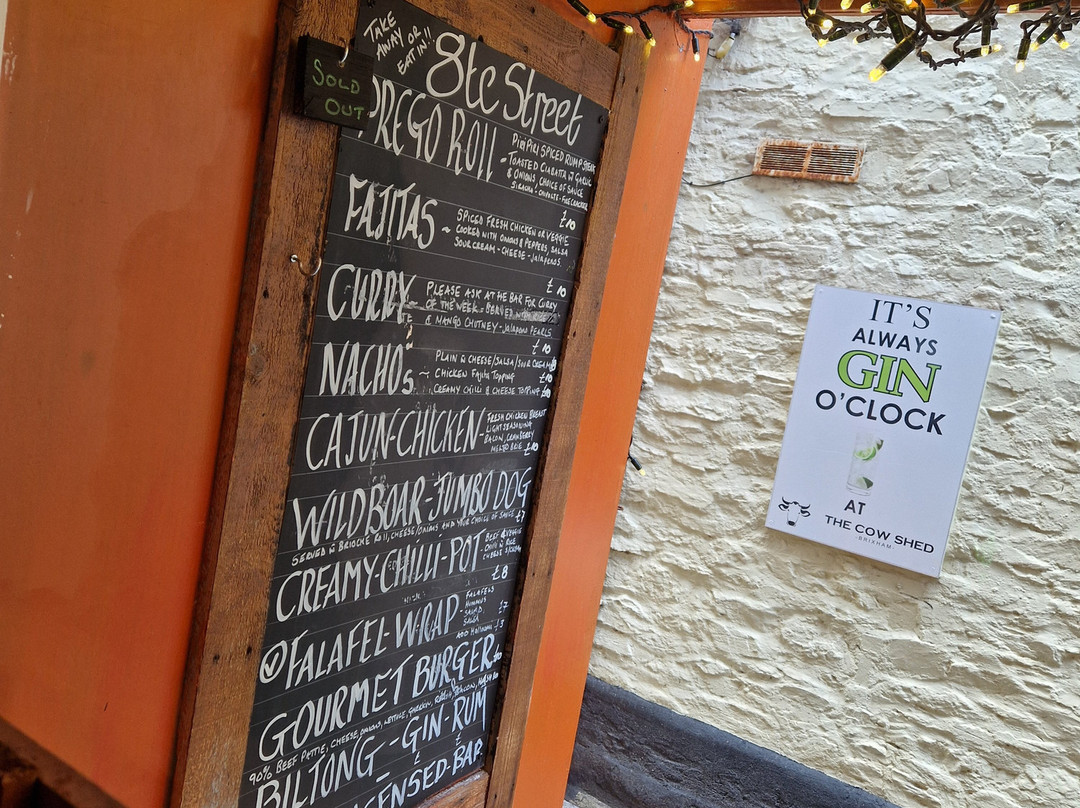 TAKE
AWAY OR
EAT IN!!
8tc Street
SOLD
OUT
PREGO ROLL
PIRI PIRI SPICED RUMP STEAK
- TOASTED CIABATTA W GARLIC
& ONIONS, CHOICE OF SAUCE
SIRACHA - CHIPOTLE - FIRECRACKER
£10
FAJITAS ~
SPICED FRESH CHICKEN OR VEGGIE
COOKED WITH ONIONS & PEPPERS, SALSA
SOUR CREAM - CHEESE - JALAPENOS
£10
CURRY
PLEASE ASK AT THE BAR FOR CURRY
OF THE WEEK - SERVED
& MANGO CHUTNEY - JALAPENO PEARLS
£10
NACHOS ~
PLAIN W CHEESE/SALSA/SOUR CREAM
CHICKEN FAJITA TOPPING £10
CREAMY CHILLI & CHEESE TOPPING £10
CAJUN-CHICKEN-
FRESH CHICKEN BREAST
LIGHT SEASONING
BACON, CRANBERRY
MELTED BRIE £10
WILD BOAR-JUMBO DOG
SERVED IN BRIOCHE ROLL, CHEESE/ONIONS AND YOUR CHOICE OF SAUCE £7
CREAMY-CHILLI-POT
BEEF & VEGGIE
CHILLI & RICE
£8
V FALAFEL-WRAP-
FALAFELS
HUMMUS
SALAD
SALSA
£7
ADD HALLOUMI - £3
GOURMET BURGER
90% BEEF PATTIE, CHEESE, ONIONS, LETTUCE, GHERKIN, BACON
BILTONG-GIN-RUM
LICENSED-BAR
IT'S
ALWAYS
GIN
O'CLOCK
AT
THE COW SHED
-BRIXHAM-